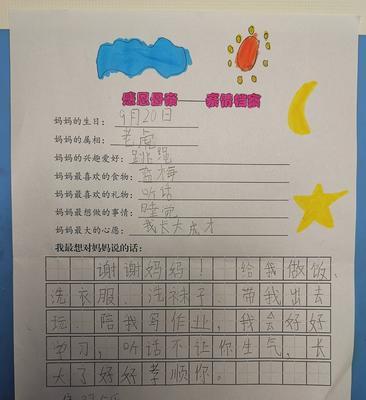 感恩母亲——亲情档案
妈妈的生日：9月20日
妈妈的属相：老虎
妈妈的兴趣爱好：跳绳
妈妈最喜欢的食物：蓝梅
妈妈最喜欢的礼物：听话
妈妈最想做的事情：睡觉
妈妈最大的心愿：我长大成才
我最想对妈妈说的话：
谢谢妈妈！给我做饭、
洗衣服、洗袜子、带我出去
玩、陪我写作业，我会好好
学习，听话不让你生气，长
大了好好孝顺你。